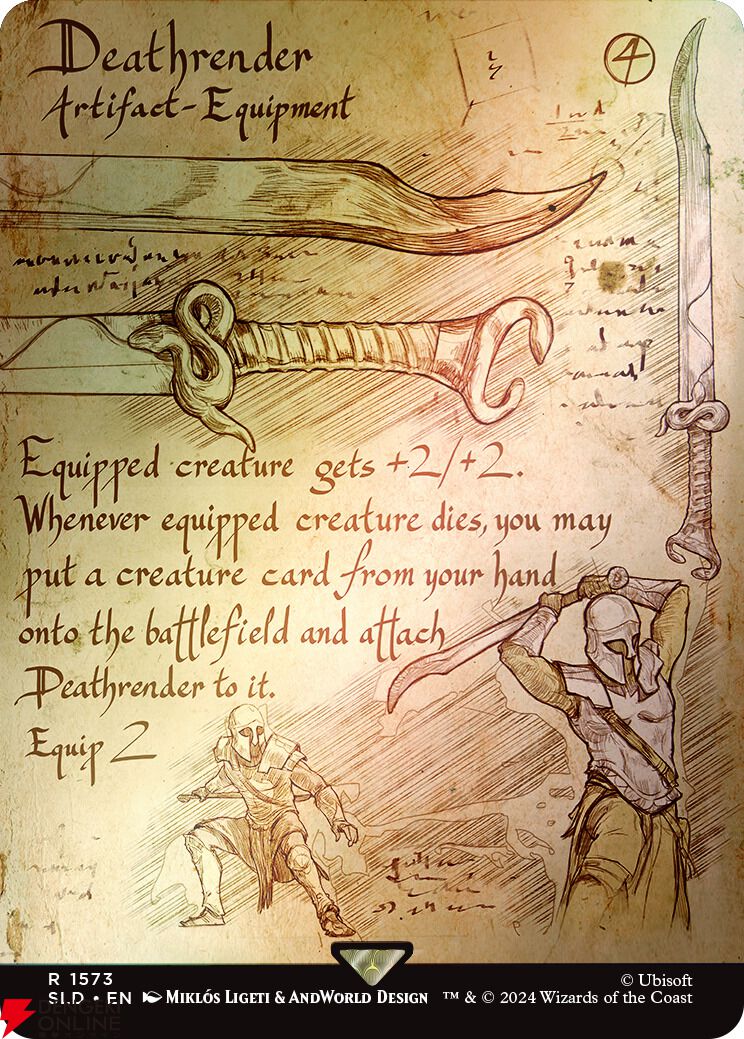 Deathrender
4
Artifact-Equipment
Equipped creature gets +2/+2.
Whenever equipped creature dies, you may
put a creature card from your hand
onto the battlefield and attach
Deathrender to it.
Equip 2
R 1573
SLD • EN Miklós Ligeti & AndWorld Design ™ & © 2024 Wizards of the Coast
© Ubisoft
DENGEKI
ONLINE